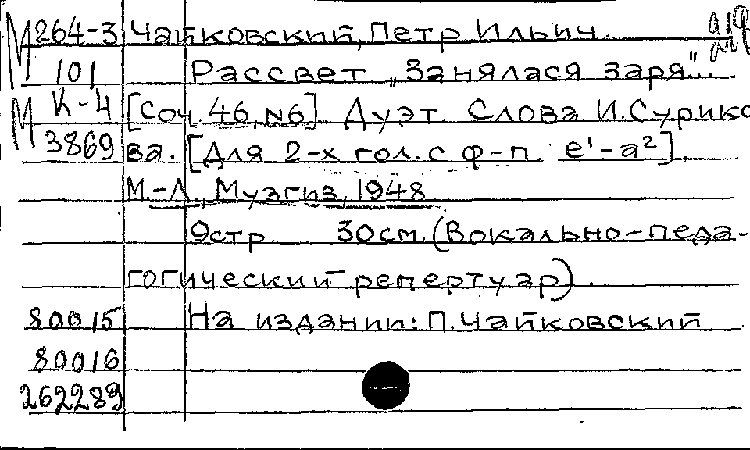 М 264-3 Чайковский, Петр Ильич
101 Рассвет „Занялася заря"...
М К-4 [Соч. 46, №6]. Дуэт. Слова И. Сурико
3869 ва. [Для 2-х гол. с ф-п. e¹-a²].
М.-Л., Музгиз, 1948
9стр 30см. (Вокально-педа-
гогический репертуар).
80015 На издании: П. Чайковский
80016
262289